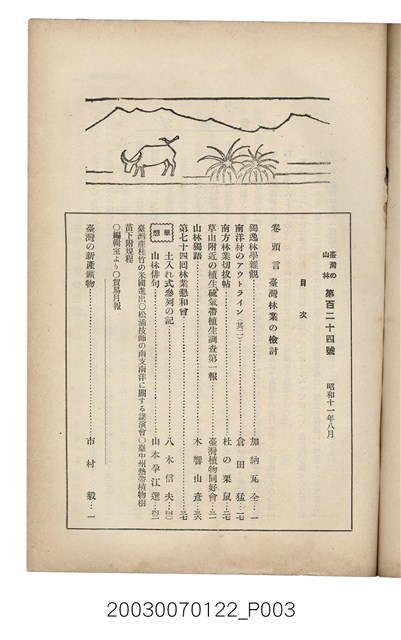 臺灣の山林 第百二十四號 昭和十一年八月
目次
卷頭言 臺灣林業の檢討
獨逸林學雜觀 加納瓦全 一
南洋材のアウトライン(其二) 倉田猛 一七
南方林業切拔帖 杜の栗鼠
草山附近の植生硫氣帶植生調查第一報 臺灣植物同好會
山林獨語 木響山彥
第七十四回林業懇和會
土入れ式參列の記 八木信夫
山林俳句 山本孕江選
臺灣產桂竹の米國進出〇松浦技師の南支南洋に關する講演會〇臺中州熱帶植物樹
苗下附規程
〇編輯室より〇貿易月報
臺灣の新產鑛物 市村毅 一
20030070122_P003